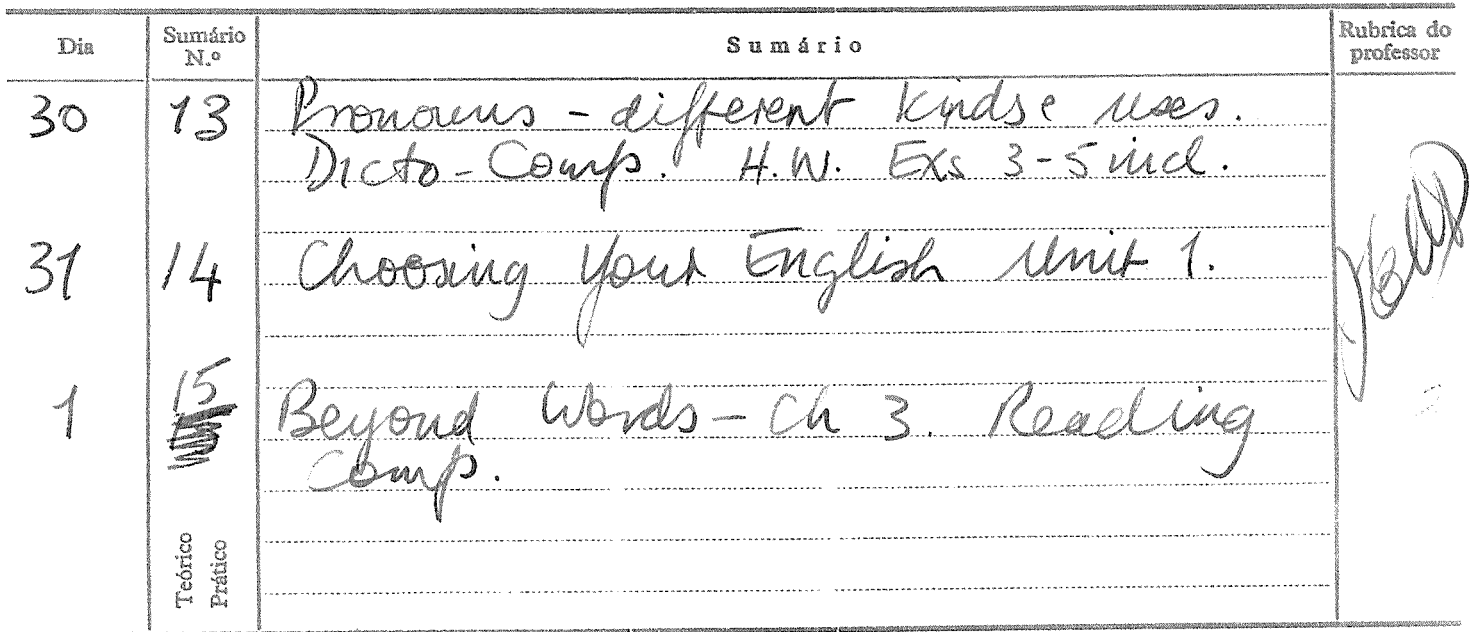 Dia Sumário N.º Sumário Rubrica do professor
30 13 Pronouns - different kinds e uses.
Dicto-Comp. H.W. Exs 3-5 incl.
31 14 Choosing Your English Unit 1.
1 15 Beyond Words - Ch 3. Reading
Comp.
Teórico
Prático